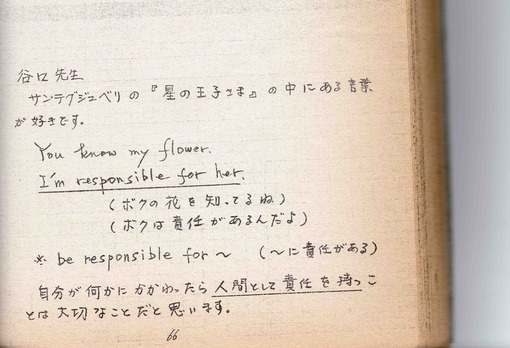 谷口先生
サンテグジュペリの『星の王子さま』の中にある言葉
が好きです。
You know my flower.
I'm responsible for her.
(ボクの花を知ってるね)
(ボクは責任があるんだよ)
* be responsible for ~ (~に責任がある)
自分が何かにかかわったら人間として責任を持つこ
とは大切なことだと思います。
66